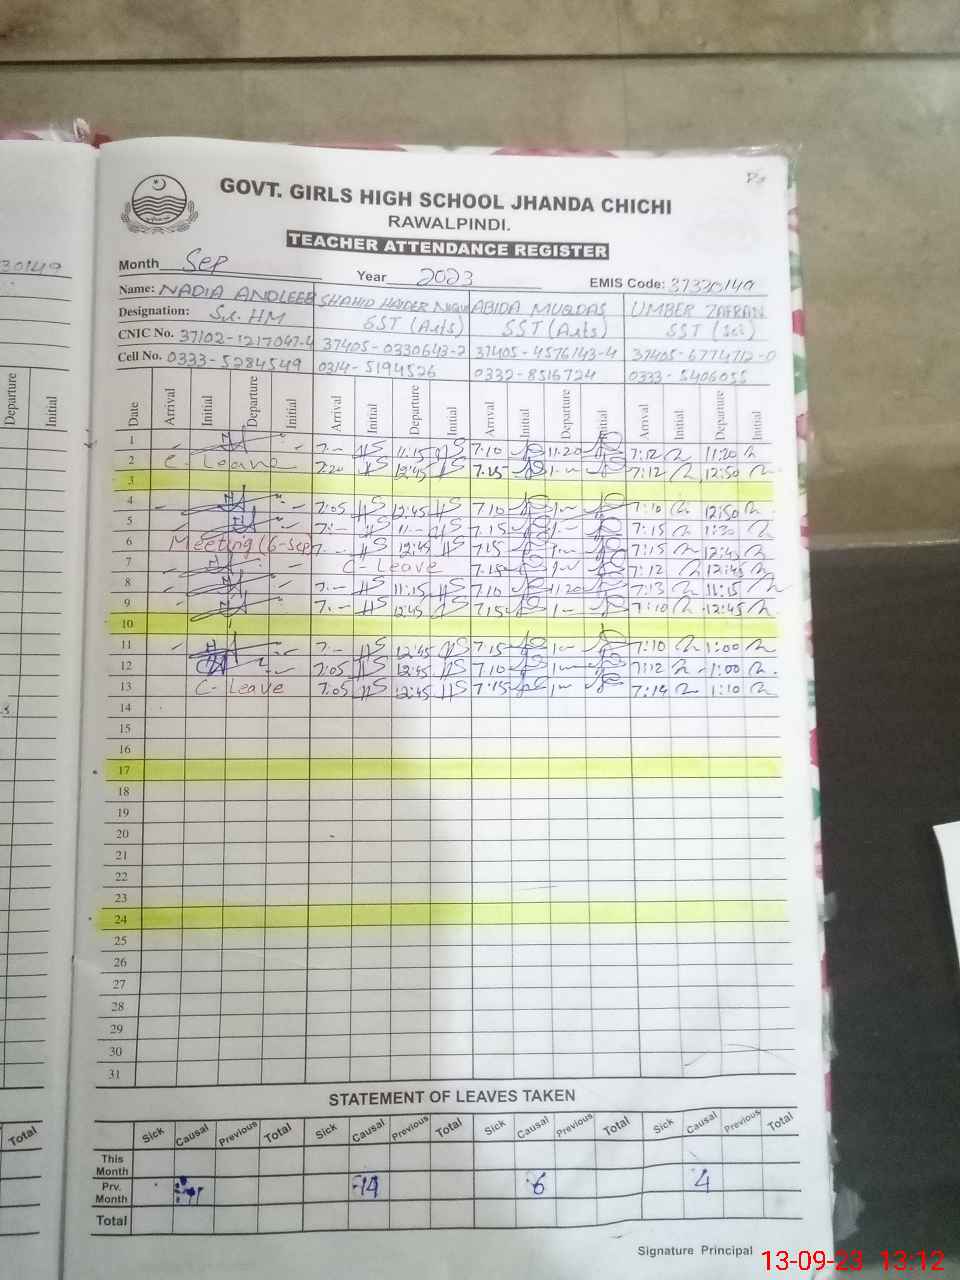 GOVT. GIRLS HIGH SCHOOL JHANDA CHICHI
RAWALPINDI.
TEACHER ATTENDANCE REGISTER
30149
Month Sep Year 2023 EMIS Code: 37330149
Name: NADIA ANDLEEB SHAHID HAIDER NAQVI ABIDA MUQDAS UMBER ZAFRAN
Designation: Sr. HM SST (Arts) SST (Arts) SST (Sci)
CNIC No. 37102-1217047-4 37405-0330643-2 37405-4576143-4 37405-6774712-0
Cell No. 0333-5284549 0314-5194526 0332-8516724 0333-5406055
Departure Initial
Date Arrival Initial Departure Initial Arrival Initial Departure Initial Arrival Initial Departure Initial Arrival Initial Departure Initial
1 7:- HS 11:15 HS 7.10 11.20 7:12 11:20
2 C-Leave 7:20 HS 12:45 HS 7.15 1:- 7:12 12:50
3
4 7:05 HS 12:45 HS 7.10 1:- 7:10 12:50
5 7:- HS 11:- HS 7.15 1:- 7:15 1:30
6 Meeting (6-Sep) 7:- HS 12:45 HS 7.15 1:- 7:15 12:45
7 C-Leave 7.15 1:- 7:12 12:45
8 7:- HS 11:15 HS 7.10 11.20 7:13 11:15
9 7:- HS 12:45 HS 7.15 1:- 7:10 12:45
10
11 7:- HS 12:45 HS 7.15 1:- 7:10 1:00
12 7:05 HS 12:45 HS 7.10 1:- 7:12 1:00
13 C-Leave 7:05 HS 12:45 HS 7.15 1:- 7:14 1:10
14
15
16
17
18
19
20
21
22
23
24
25
26
27
28
29
30
31
STATEMENT OF LEAVES TAKEN
Total
Sick Causal Previous Total Sick Causal Previous Total Sick Causal Previous Total Sick Causal Previous Total
This Month
Prv. Month 14 6 4
Total
Signature Principal
13-09-23 13:12